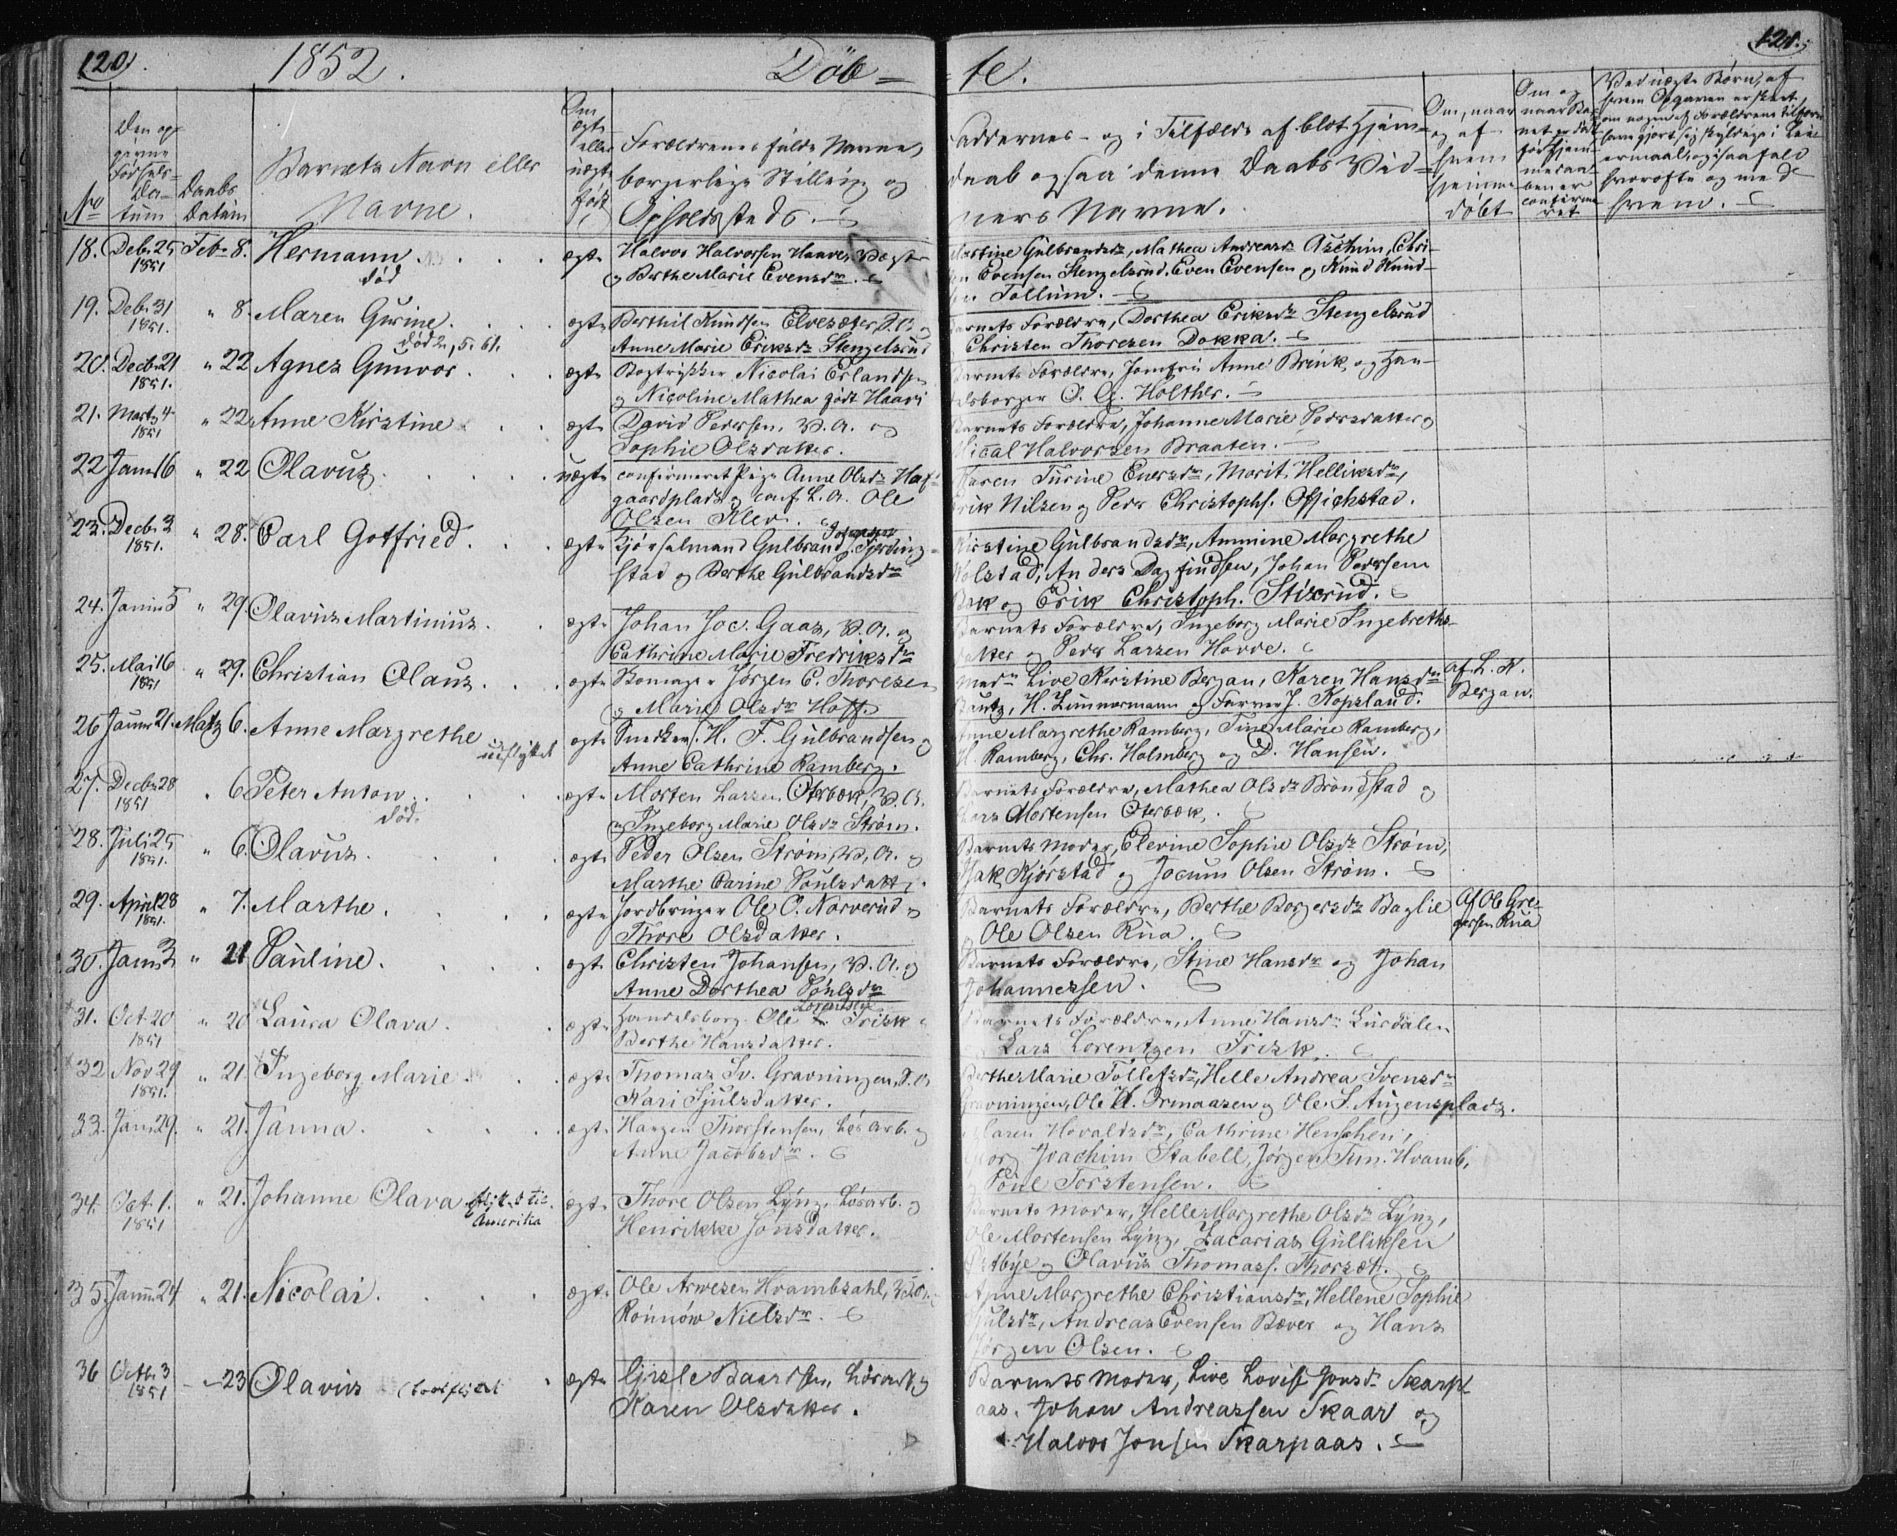 120. 1852. Døb = = te. 121.
Den op-
givne
Fødsels-
Da-
tum
No
Daabs
Datum
Barnets Navn eller
Navne.
Om
ægte
eller
uægte
født
Forældrenes fulde Navne,
borgerlige Stilling og
Opholdssteds.
Faddernes - og i Tilfælde af blot Hjem-
daab ogsaa denne Daabs Vid-
ners Navne.
Om, naar
og af
hvem
hjemme
døbt
Om og
naar Bar-
net er død
før Hjem-
medaa-
ben er
confirme-
ret
Ved uægte Børn, af
hvem Opgaven er skeet,
om nogen af Forældrene tilforn
have gjort sig skyldige i Leie-
ermaal, og i saa fald
hvorofte og med
hvem.
18. Decbr 25 1851 Febr 8. Hermann død ægte Halvor Halvorsen Haave,
og Berthe Marie Evensdr.
Martine Gulbrandsdr, Mathea Andreasdr Aschim, Chri-
Evensen Stengelsrud, Even Evensen og Knud Knud-
sen Tollum.
19. Decbr 31 1851. " 8. Maren Gurine. død 2, 5. 61. ægte Berthil Knudsen Elvesæter, og
Anne Marie Eriksdr Stengelsrud
Barnets Forældre, Dorthea Eriksdr Stengelsrud
Christen Thoresen Dokka.
20. Decbr 21 1851. " 22 Agnes Gunvor. ægte Bogtrykker Nicolai Erlandsen
og Nicoline Mathea født Haavi
Barnets Forældre, Jomfru Anne Brink, og Han-
delsborger O. G. Holther.
21. Marts 4 1851 " 22 Anne Kirstine ægte David Pedersen, P. A. og
Sophie Olsdatter.
Barnets Forældre, Johanne Marie Pedersdatter og
Michal Halvorsen Braaten.
22 Janr 16 " 22 Olavus. uægte confirmeret Pige Anne Olsdr Haf-
gaardsplads og conf. L. A. Ole
Olsen Klev.
Karen Turine Eversdr, Marit Helliksdr,
Erik Nilsen og Peder Christophs. Offichstad.
23. Decbr 3 1851. " 28. Carl Gotfried. ægte Kjørselmand Gulbrand Fjerding-
stad og Berthe Gulbrandsdr
Kirstine Gulbrandsdr, Ammine Margrethe
Wolstad, Anders Dagfindsen, Johan Pedersen
Bak og Erik Christoph. Stixrud.
24. Janur 5 " 29. Olavus Martinius. ægte Johan Joc. Gaas, P. A. og
Cathrine Marie Fredriksdr
Barnets Forældre, Ingeborg Marie Ingebreths-
datter og Peder Larsen Hovde.
25. Mai 16 1851 " 29. Christian Olaus. ægte Skomager Jørgen C. Thoresen
og Marie Olsdr Hoff.
Madm Live Kirstine Bergan, Karen Hansdr
Bautz, H. Zimmermann og Farver J. Kopsland.
af L. K.
Bergan.
26 Januar 21. Marts 6. Anne Margrethe udflyttet ægte Snedker H. F. Gulbrandsen og
Anne Cathrine Ramberg.
Anne Margrethe Ramberg, Tine Marie Ramberg,
H. Ramberg, Chr. Holmberg og D. Hansen.
27. Decbr 28 1851 " 6 Peter Anton. død. ægte Morten Larsen Oterbæk, P. A.
og Ingeborg Marie Olsdr Strøm.
Barnets Forældre, Mathea Olsdr Brøndstad og
Lars Mortensen Oterbæk.
28. Juli 25 1851. " 6. Olavus. ægte Peder Olsen Strøm, P. A. og
Marthe Carine Poulsdatter.
Barnets Moder, Elevine Sophie Olsdr Strøm,
Isak Kjørstad og Jocum Olsen Strøm.
29. April 28 1851. " 7. Marthe. ægte Jordbruger Ole O. Narverud og
Thore Olsdatter.
Barnets Forældre, Berthe Borgersdr Baglie
Ole Olsen Rua.
Af Ole Gre-
gersen Rua
30. Janr 3 " 21 Pauline. ægte Christen Johansen, P. A. og
Anne Dorthea Poulsdr
Barnets Forældre, Stine Hansdr og Johan
Johannessen.
31. Oct. 20 1851 " 20 Laura Olava. ægte Handelsborg. Ole Lorentzen Frisk
Berthe Hansdatter.
Barnets Forældre, Anne Hansdr Lurdalen
Lars Lorentzen Frisk.
32 Nov 29 1851. " 21. Ingeborg Marie ægte Thomas Sv. Gravningen, P. A.
Kari Sjulsdatter.
Berthe Marie Tollefsdr, Helle Andrea Svensdr
Gravningen, Ole H. Ormaasen og Ole S. Augensplads.
33. Janr 29. " 21. Janna. ægte Hansen Thorstensen, Løsarb. og
Anne Jacobsdr.
Maren Hovaldsdr, Cathrine Henschen,
Joachim Stabell, Jørgen Sim. Hvamb,
Poul Torstensen.
34. Oct. 1. 1851 " 21. Johanne Olava flyttet til Amerika ægte Thore Olsen Lyng, Løsarb. og
Henrikke Jonsdatter.
Barnets Moder, Helle Margrethe Olsdr Lyng,
Ole Mortensen Lyng, Zacarias Gulliksen
og Olavus Thomass. Thorsæt.
35. Janur 24 " 21. Nicolai. ægte Ole Arvesen Hvambsahl,
Rønnow Nielsdr.
Anne Margrethe Christiansdr, Hellene Sophie
Andreas Evensen Bæver og Hans
Jørgen Olsen.
36 Octbr 3 1851 " 23 Olavus (bortflyttet ægte Gisle Baardsen, Løsarb. og
Karen Olsdatter.
Barnets Moder, Live Lovise Jonsdr Skarp-
aas, Johan Andreassen Skaar og
Halvor Jonsen Skarpaas.